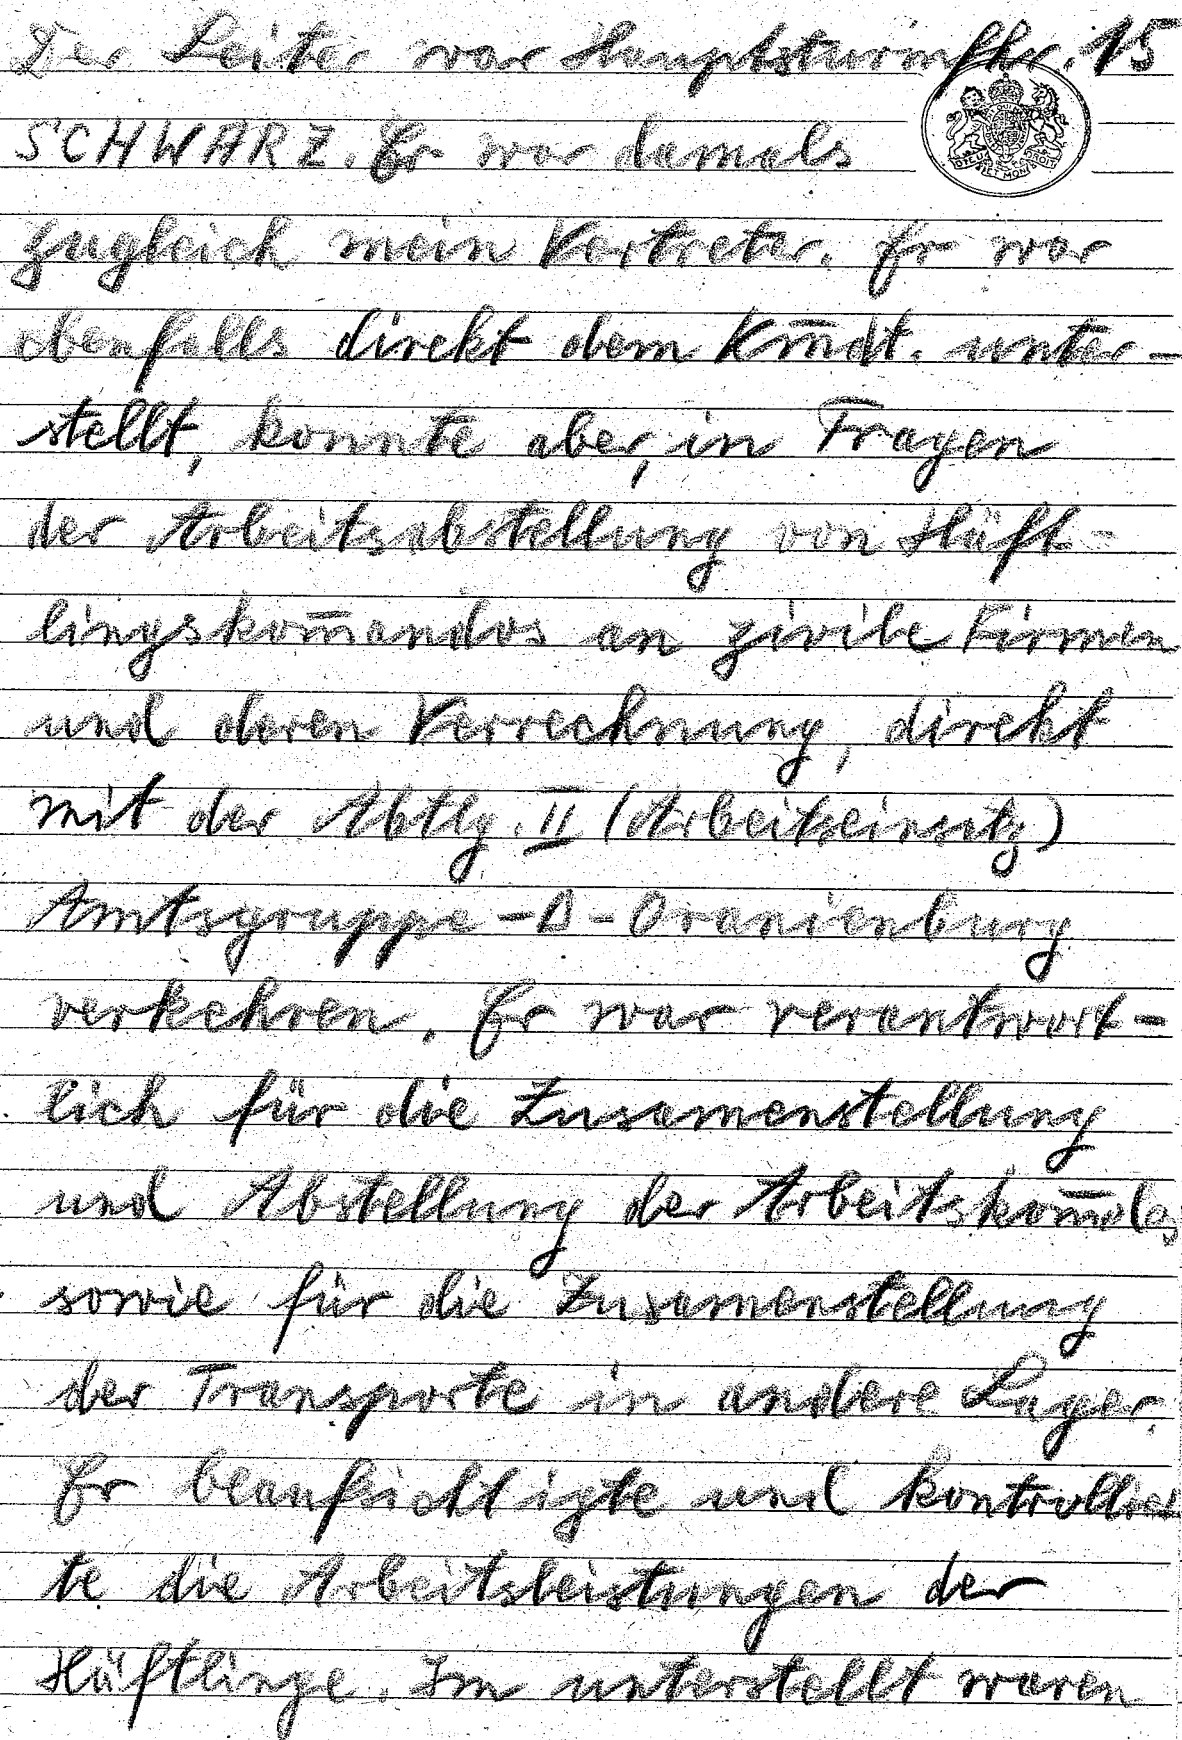 Der Leiter war Hauptsturmfhr. 15
SCHWARZ. Er war damals
zugleich mein Vertreter. Er war
ebenfalls direkt dem Km̄dt. unter-
stellt, konnte aber, in Fragen
der Arbeitsabstellung von Häft-
lingskom̄andos an zivile Firmen
und deren Verrechnung, direkt
mit der Abtlg. II (Arbeitseinsatz)
Amtsgruppe - D - Oranienburg
verkehren. Er war verantwort-
lich für die Zusamenstellung
und Abstellung der Arbeitskom̄dos
sowie für die Zusamenstellung
der Transporte in andere Lager.
Er beaufsichtigte und kontrollier
te die Arbeitsleistungen der
Häftlinge. Im unterstellt waren